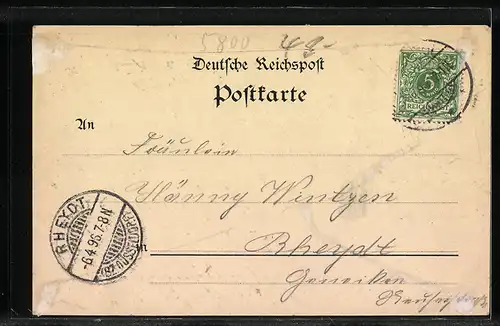 5800 49-
Deutsche Reichspost
Postkarte
5
REICHSPOST
An
Fräulein
Änny Wintgen
in Rheydt
Geneiken
RHEYDT
-6.4.96.7-8N.
(BZ. DÜSSELDORF)